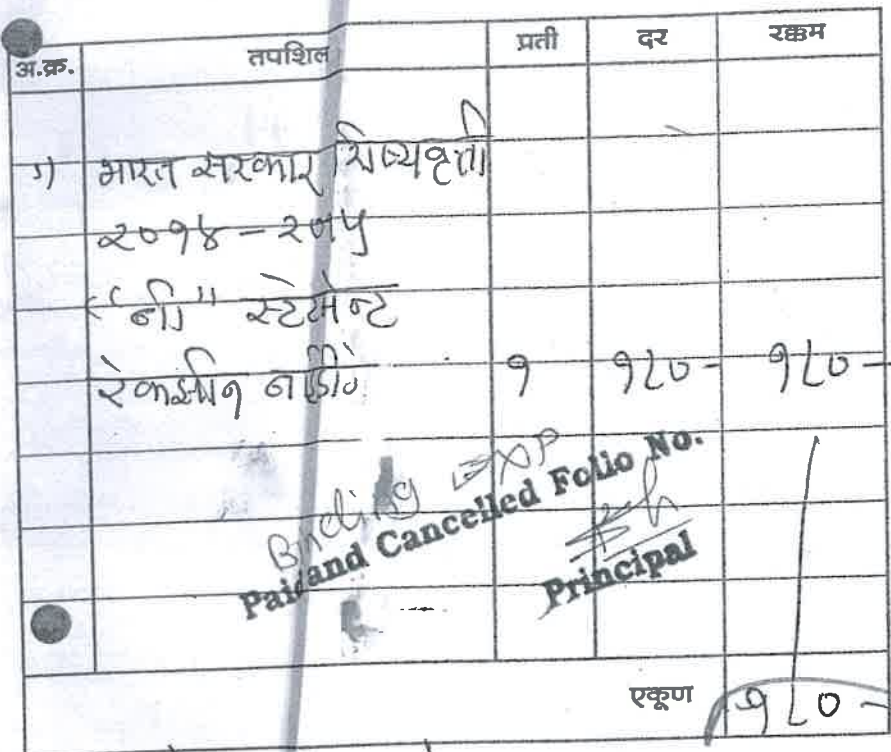 अ.क्र. तपशिल प्रती दर रक्कम
१) भारत सरकार शिष्यवृत्ती
२०१४ – २०१५
"बी" स्टेटमेन्ट
रेकझीन बाईंडींग १ १८० - १८० -
Binding EXP
Paid and Cancelled Folio No.
Principal
एकूण १८० -